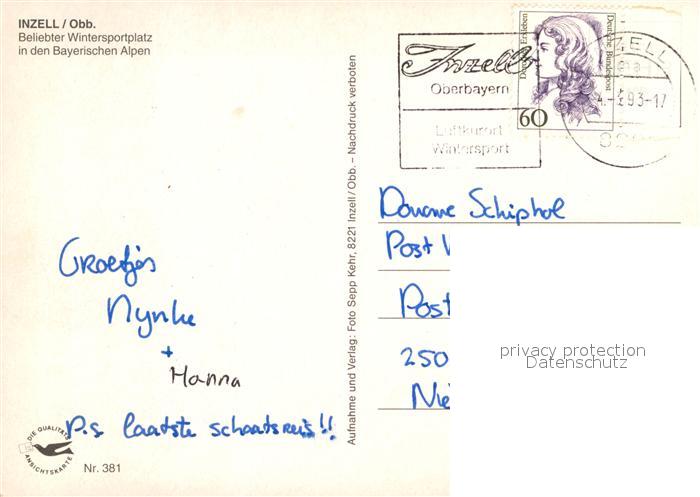 INZELL / Obb.
Beliebter Wintersportplatz
in den Bayerischen Alpen
Inzell
Oberbayern
Luftkurort
Wintersport
Dorothea Erxleben
Deutsche Bundespost
60
INZELL
93-17
Douane Schiphol
Post
Post
250
Nie
privacy protection
Datenschutz
Aufnahme und Verlag: Foto Sepp Kehr, 8221 Inzell / Obb. – Nachdruck verboten
Groetjes
Nynke
+
Hanna
P.s laatste schaatsreis!!
DIE QUALITÄTS
ANSICHTSKARTE
Nr. 381